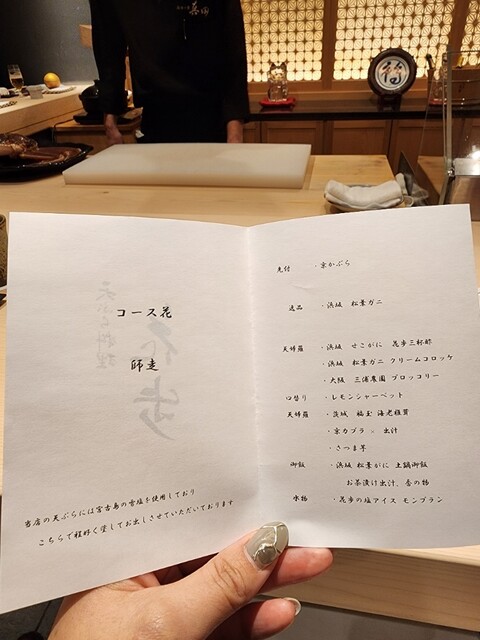 コース花
師走
天ぷら料理
当店の天ぷらには宮古島の雪塩を使用しており
こちらで程好く塗してお出しさせていただいております
先付 ・京かぶら
逸品 ・浜坂 松葉ガニ
天婦羅 ・浜坂 せこがに 花歩三杯酢
・浜坂 松葉ガニ クリームコロッケ
・大阪 三浦農園 ブロッコリー
口替り ・レモンシャーベット
天婦羅 ・茨城 福玉 海老雅寶
・京カブラ × 出汁
・さつま芋
御飯 ・浜坂 松葉がに 土鍋御飯
お茶漬け出汁、香の物
水物 ・花歩の塩アイス モンブラン